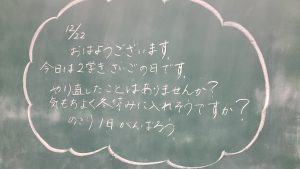 12/22
おはようございます。
今日は2学きさいごの日です。
やり直したことはありませんか?
気もちよく冬休みに入れそうですか?
のこり1日がんばろう。